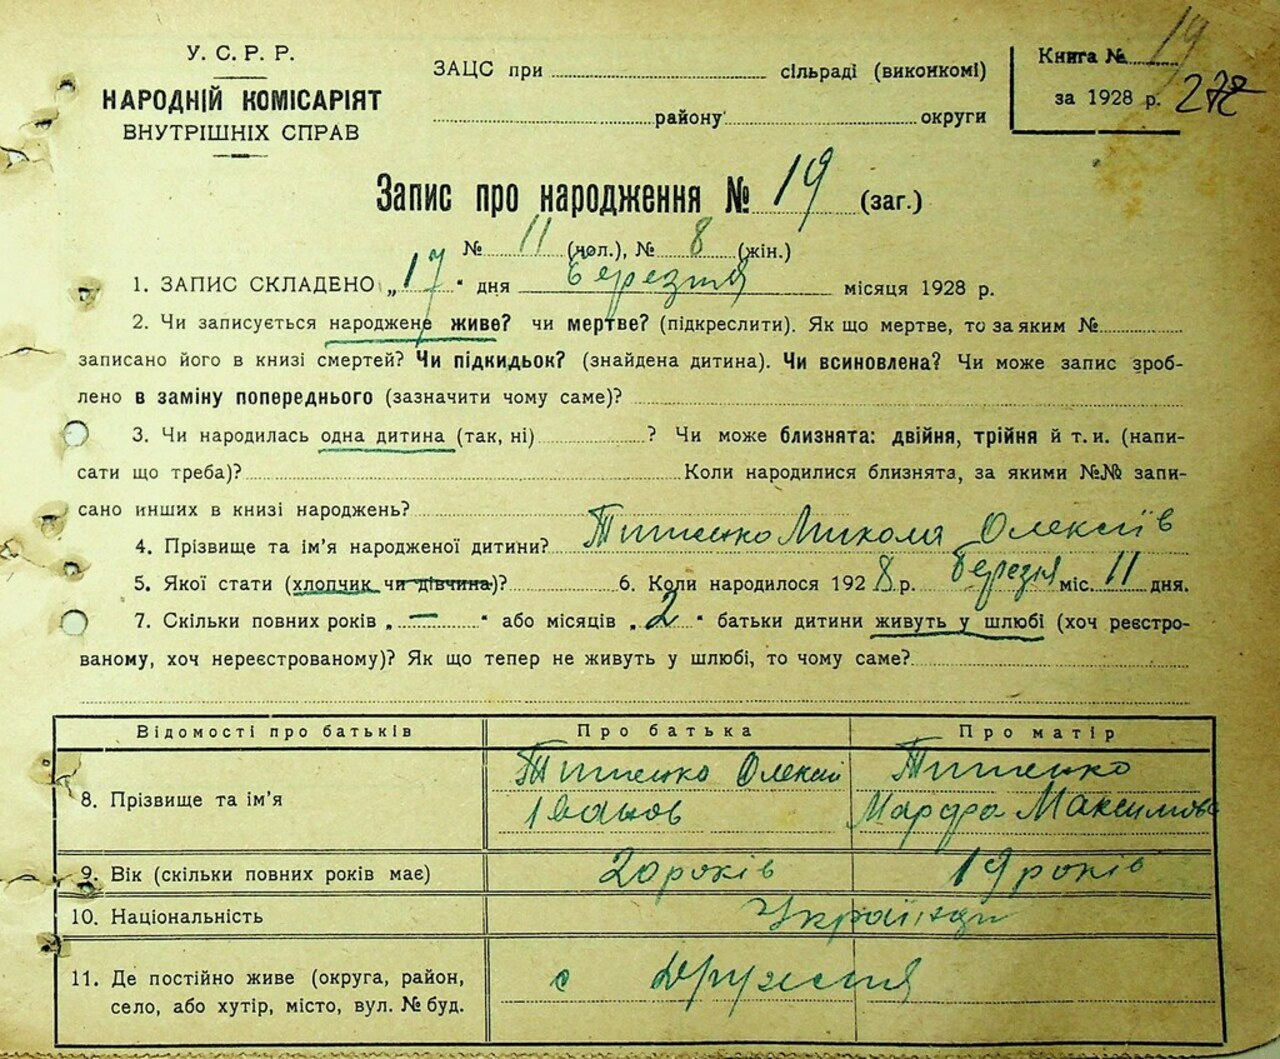 У. С. Р. Р.
НАРОДНІЙ КОМІСАРІЯТ
ВНУТРІШНІХ СПРАВ
ЗАЦС при сільраді (виконкомі)
району округи
Книга № 19
за 1928 р.
Запис про народження № 19 (заг.)
№ 11 (чол.), № 8 (жін.)
1. ЗАПИС СКЛАДЕНО „ 17 “ дня березня місяця 1928 р.
2. Чи записується народжене живе? чи мертве? (підкреслити). Як що мертве, то за яким №
записано його в книзі смертей? Чи підкидьок? (знайдена дитина). Чи всиновлена? Чи може запис зроб-
лено в заміну попереднього (зазначити чому саме)?
3. Чи народилась одна дитина (так, ні) ? Чи може близнята: двійня, трійня й т. и. (напи-
сати що треба)? Коли народилися близнята, за якими №№ запи-
сано инших в книзі народжень?
4. Прізвище та ім'я народженої дитини? Тищенко Микола Олексіїв
5. Якої стати (хлопчик чи дівчина)? 6. Коли народилося 1928 р. Березня міс. 11 дня.
7. Скільки повних років „ — “ або місяців „ 2 “ батьки дитини живуть у шлюбі (хоч реєстро-
ваному, хоч нереєстрованому)? Як що тепер не живуть у шлюбі, то чому саме?
Відомості про батьків Про батька Про матір
8. Прізвище та ім'я
Тищенко Олексій
Іванов
Тищенко
Марфа Максимова
9. Вік (скільки повних років має) 20 років 19 років
10. Національність Українци
11. Де постійно живе (округа, район,
село, або хутір, місто, вул. № буд.
с